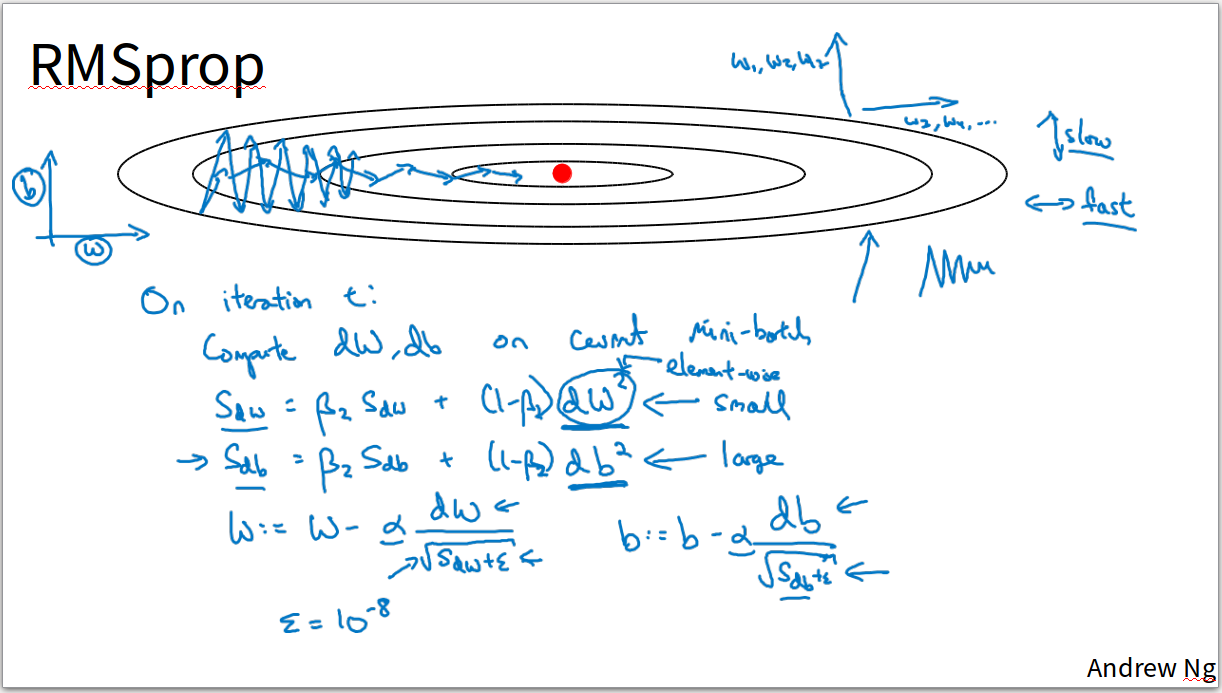 RMSprop
w₁, w₂, w₂
w₂, w₄, ...
slow
b
fast
w
On iteration t:
Compute dW, db on current mini-batch
element-wise
S_dw = β₂ S_dw + (1-β₂) dW² ← small
→ S_db = β₂ S_db + (1-β₂) db² ← large
w := w - α dw / √S_dw+ε ← b := b - α db / √S_db+ε ←
ε = 10⁻⁸
Andrew Ng